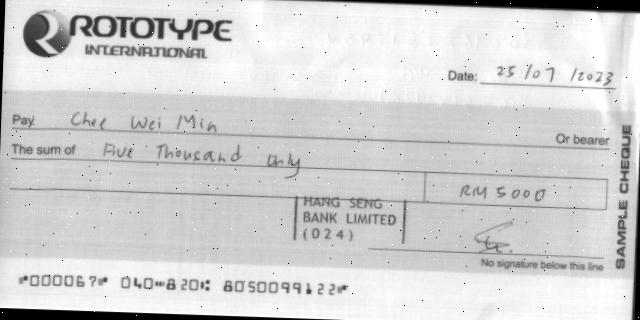 ROTOTYPE
INTERNATIONAL
Date: 25/07/2023
Pay Chee Wei Min
Or bearer
The sum of Five Thousand Only
RM 5000
HANG SENG
BANK LIMITED
(024)
No signature below this line
SAMPLE CHEQUE
⑈000067⑈ 040⑉820⑆ 8050099122⑈